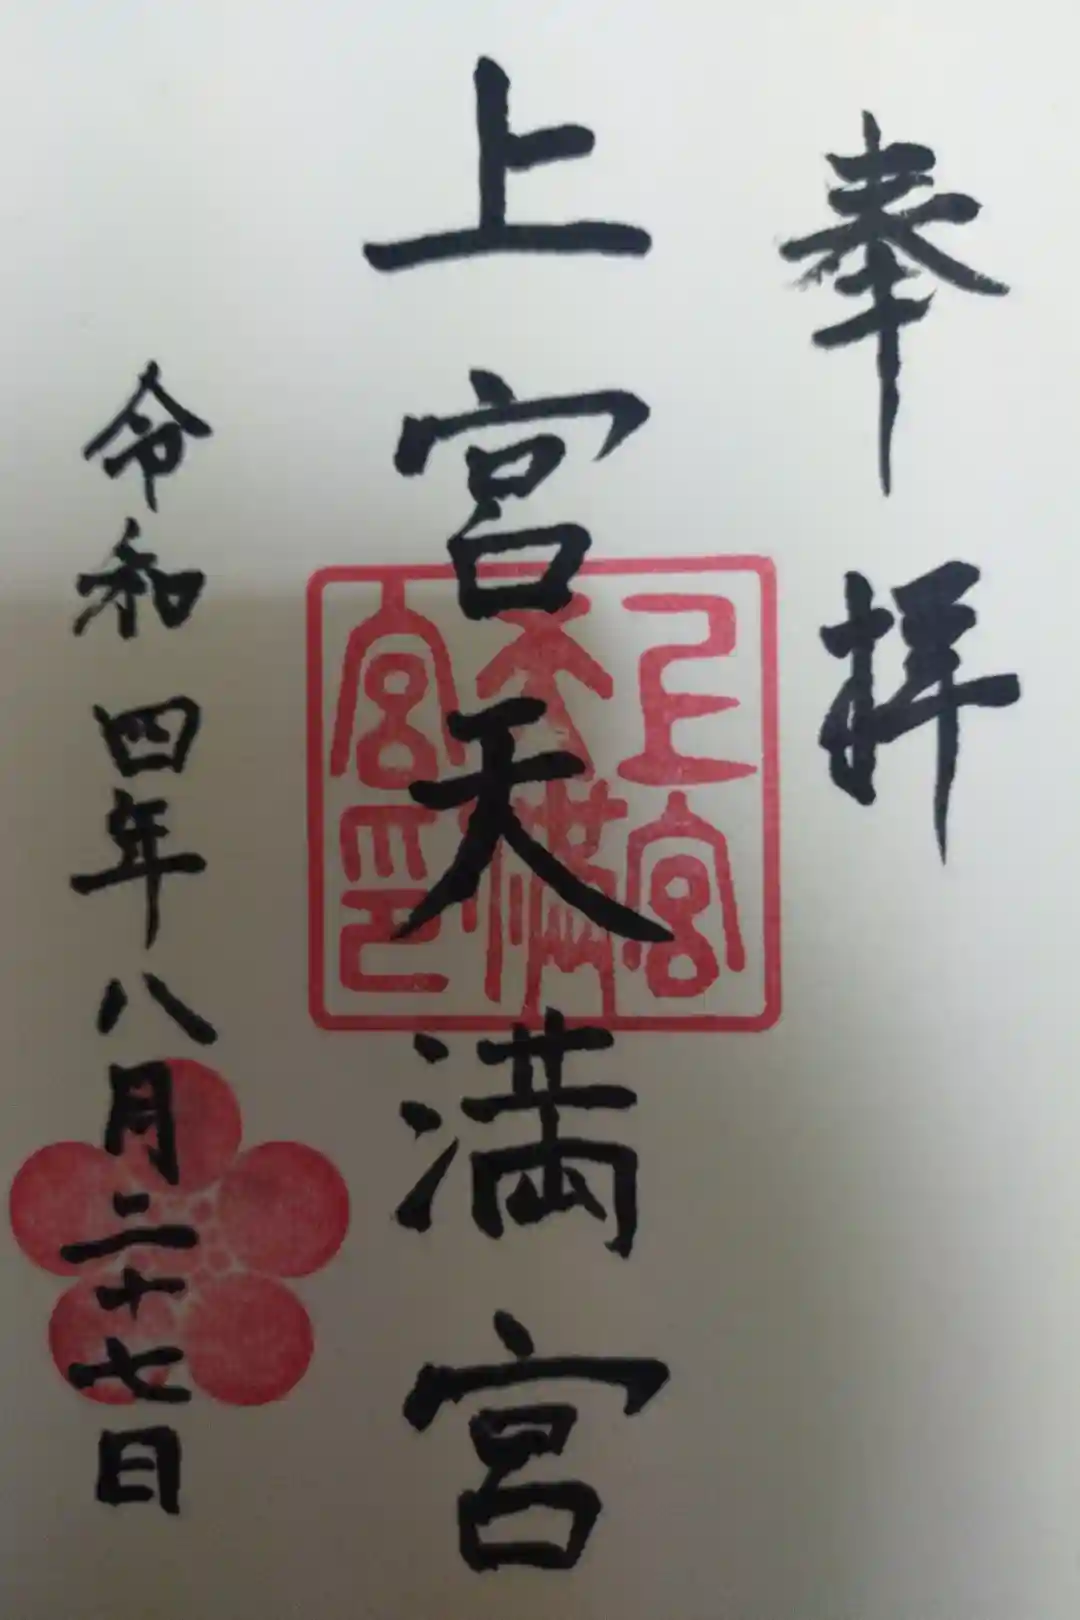 奉拝
上宮天満宮
上宮
天満
宮印
令和四年八月二十七日